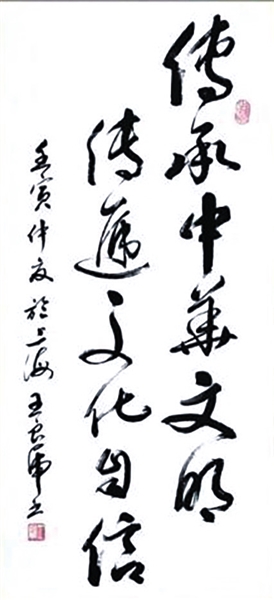 傳承中華文明
傳遞文化自信
壬寅仲夏於上海王良虎书